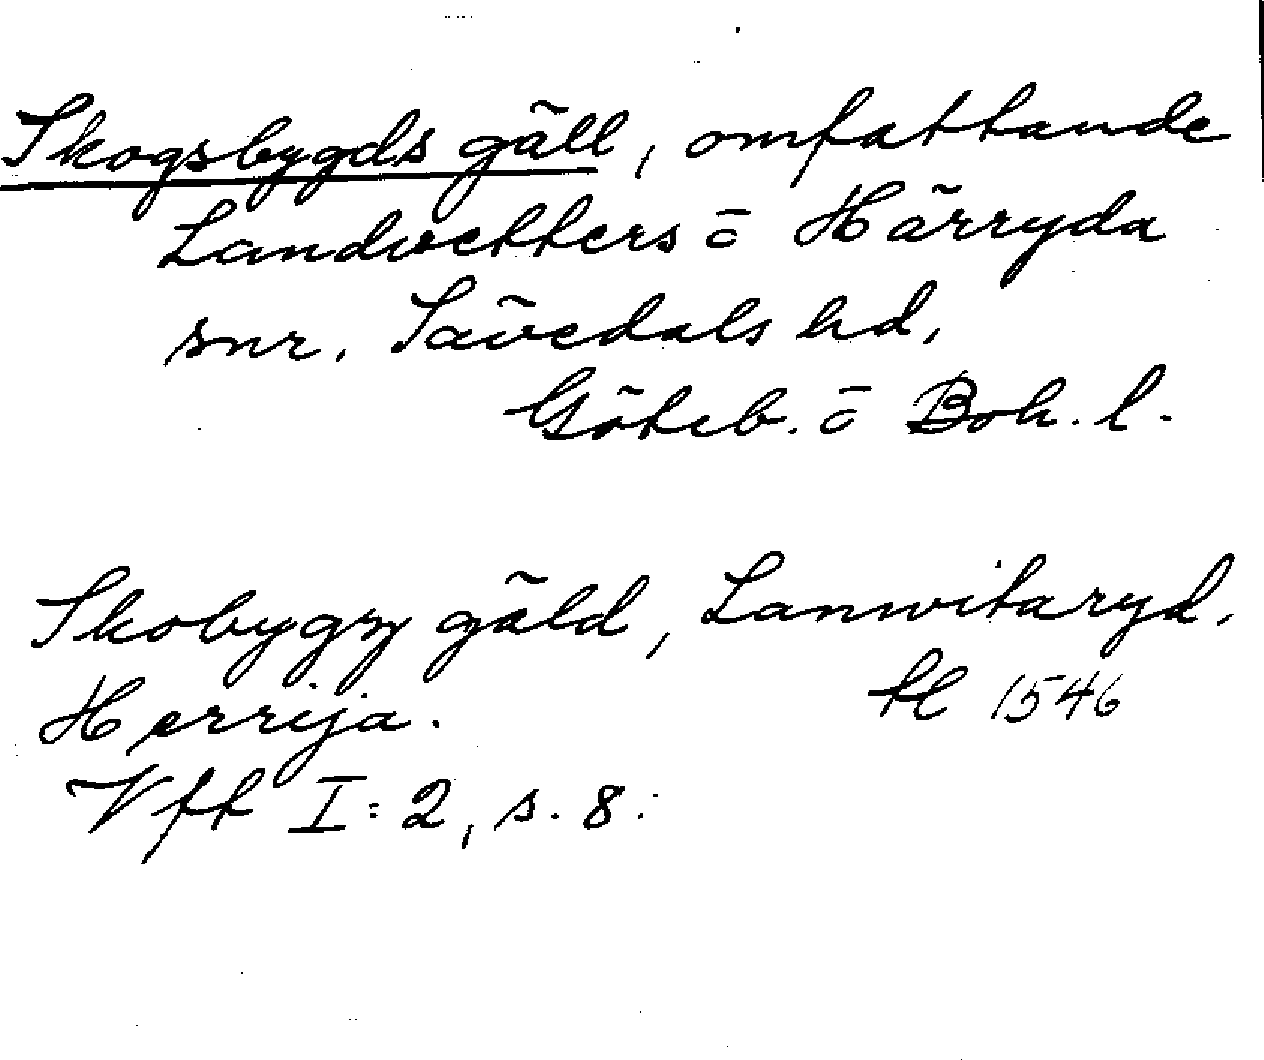 Skogsbygds gäll, omfattande
Landvetters o Härryda
snr. Sävedals hd,
Göteb. o Boh. l.
Skobygzy gäld, Lanwitaryd.
Herrija. tl 1546
Vft I:2, s. 8.